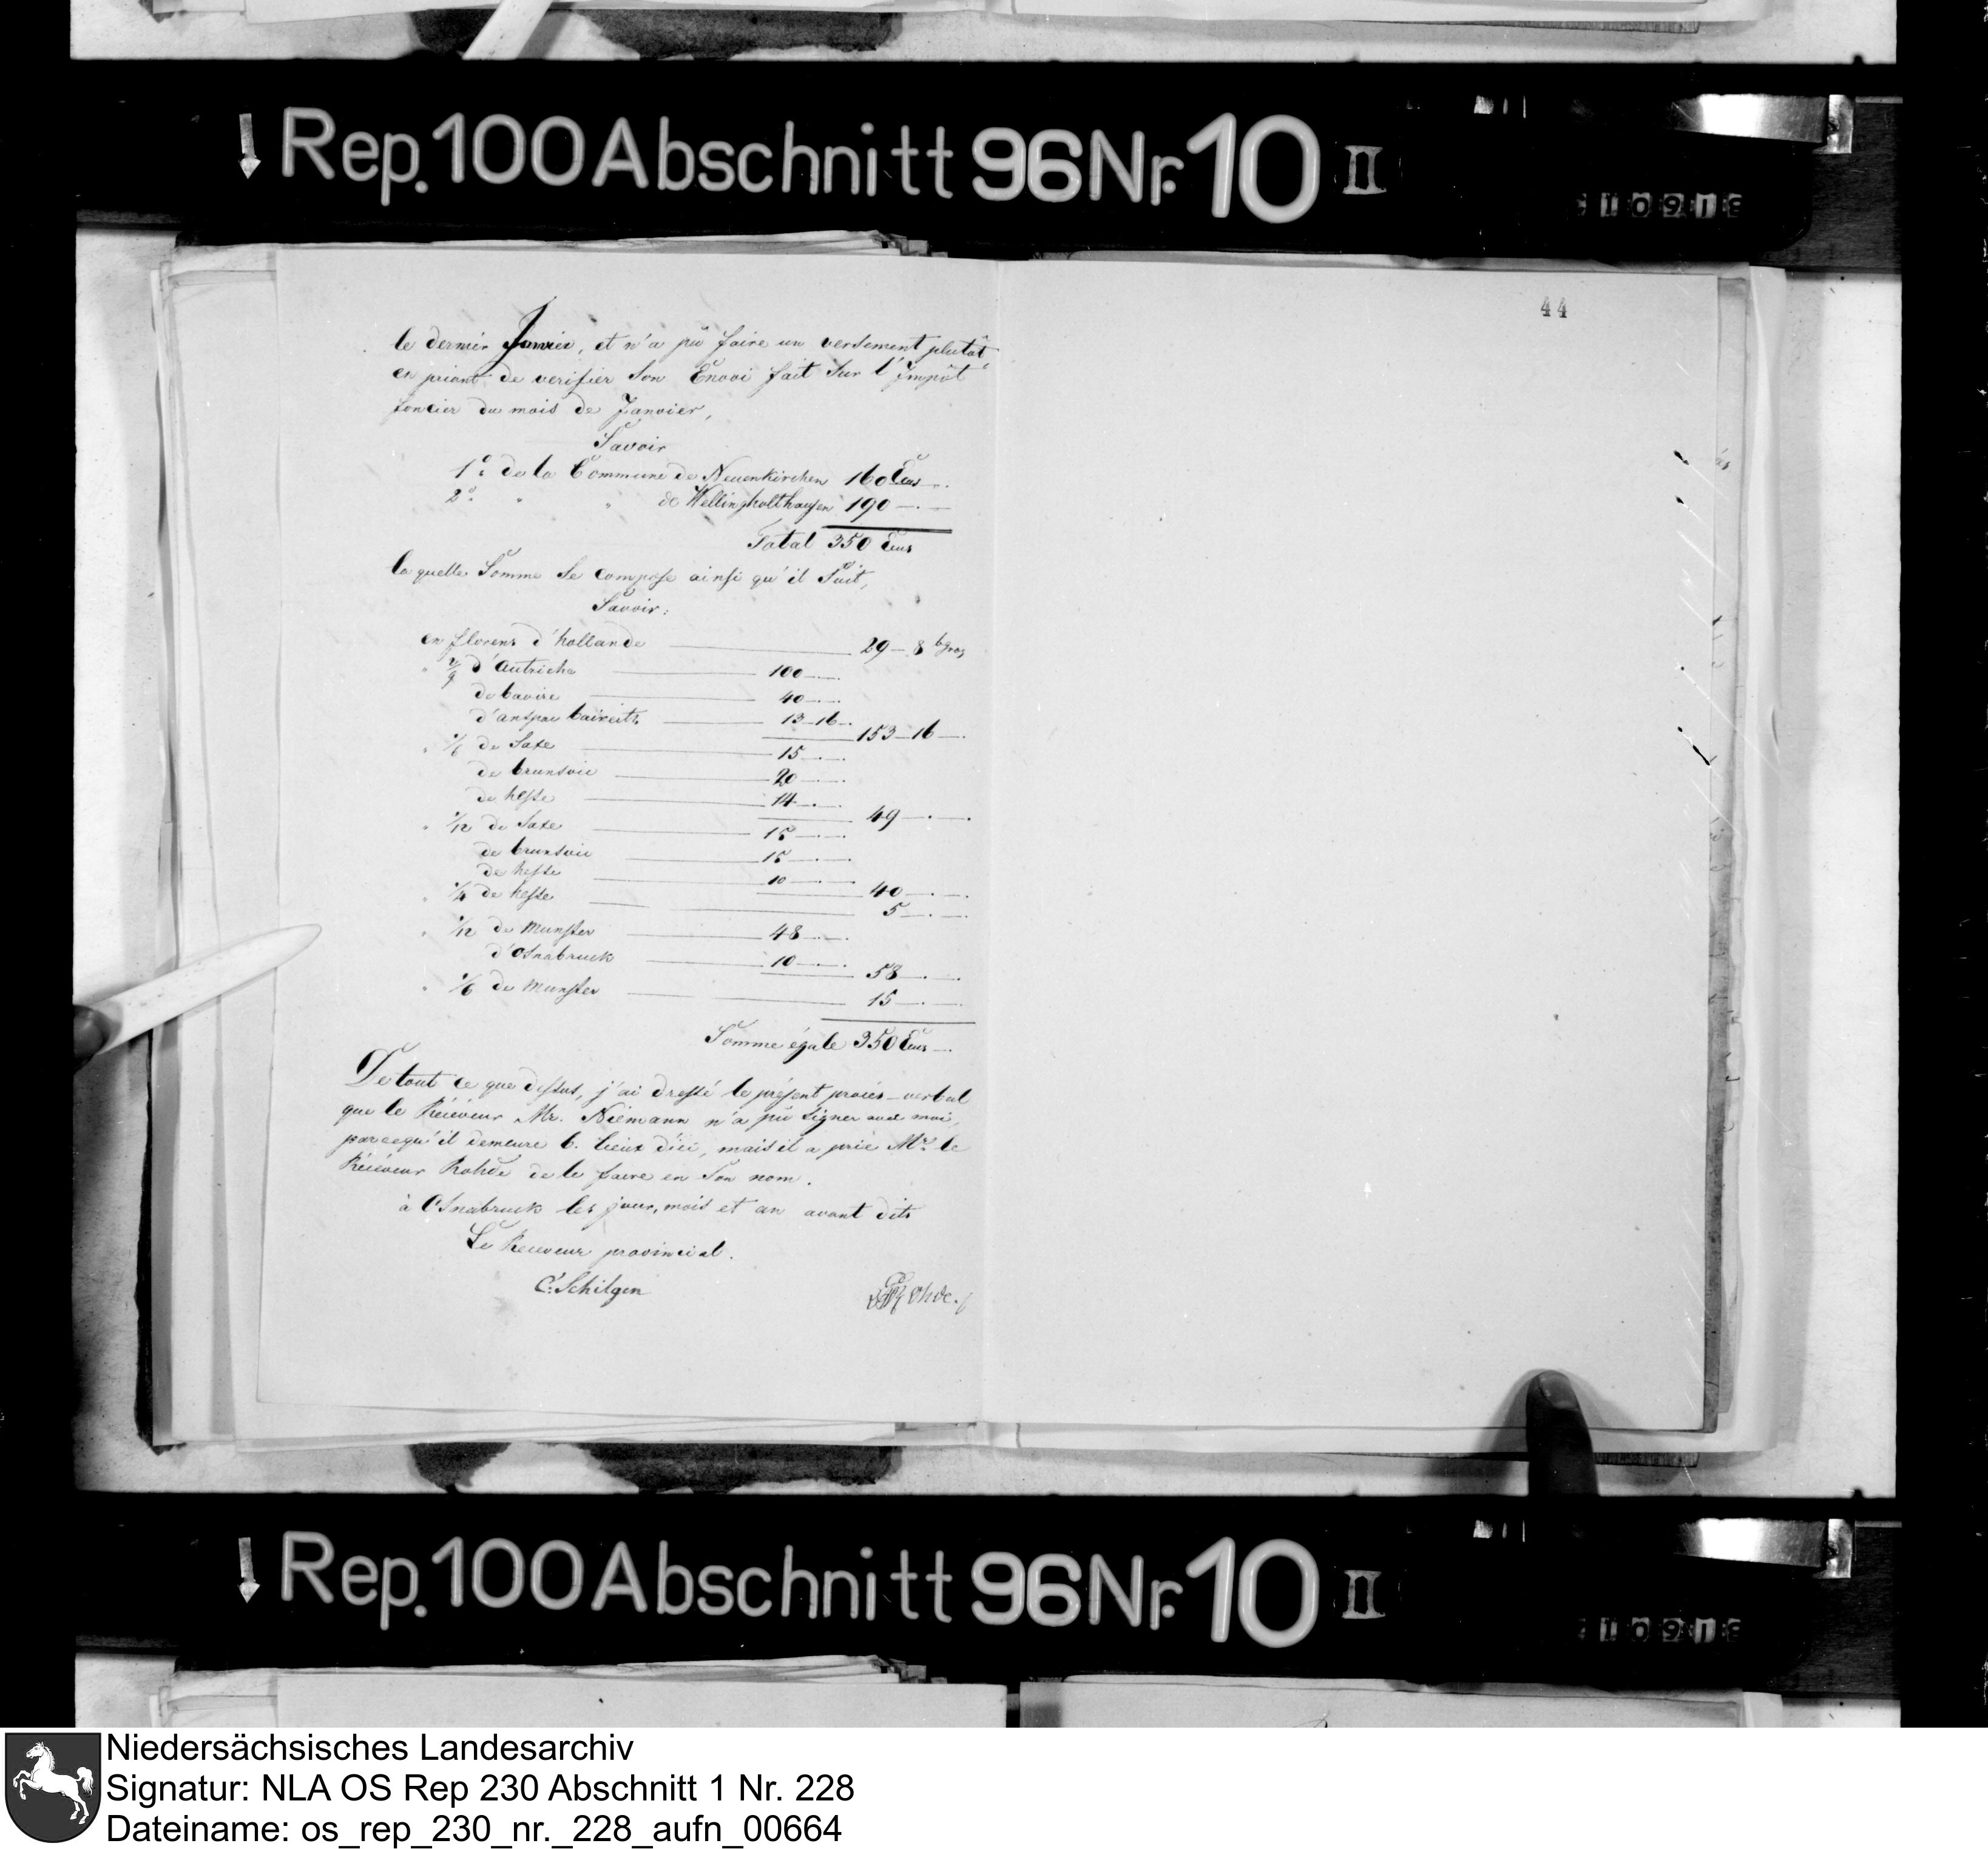 Rep. 100 Abschnitt 96 Nr. 10 II
10913
44
le dernier Janvier, et n'a pû faire un versement plutôt,
en priant de verifier son Envoi fait sur l'Impôt
foncier du mois de Janvier,
Savoir
1º. de la Commune de Neuenkirchen 160 Ecus —.
2º. " " de Wellingholthausen 190 —.—
Total 350 Ecus
la quelle Somme se compose ainsi qu'il Suit,
Savoir:
en florens d'hollande 29 — 8 bgros
" 2/3 d'Autriche 100 —.—
de baviere 40 —.—
d'anspac baireith 13 — 16 —.
153 — 16 —.
" 1/6 de Saxe 15 —.—
de brunsvic 20 —.—
de hesse 14 —.—
49 —.—
" 1/12 de Saxe 15 —.—
de brunsvic 15 —.—
de hesse 10 —.—
40 —.—
" 1/4 de hesse 5 —.—
" 1/12 de Munster 48 —.—
d'Osnabruck 10 —.—
58 —.—
" 1/6 de Munster 15 —.—
Somme égale 350 Ecus —.
De tout ce que dessus, j'ai dressé le présent procés-verbal
que le Récéveur Mr. Niémann n'a pû signer avec moi,
parcequ'il demeure 6. lieux d'ici, mais il a prié Mr. le
Récéveur Rohde de le faire en Son nom.
à Osnabruck les jour, mois et an avant dits
Le Receveur provincial.
C. Schilgen
Rohde.
Rep. 100 Abschnitt 96 Nr. 10 II
10913
Niedersächsisches Landesarchiv
Signatur: NLA OS Rep 230 Abschnitt 1 Nr. 228
Dateiname: os_rep_230_nr._228_aufn_00664